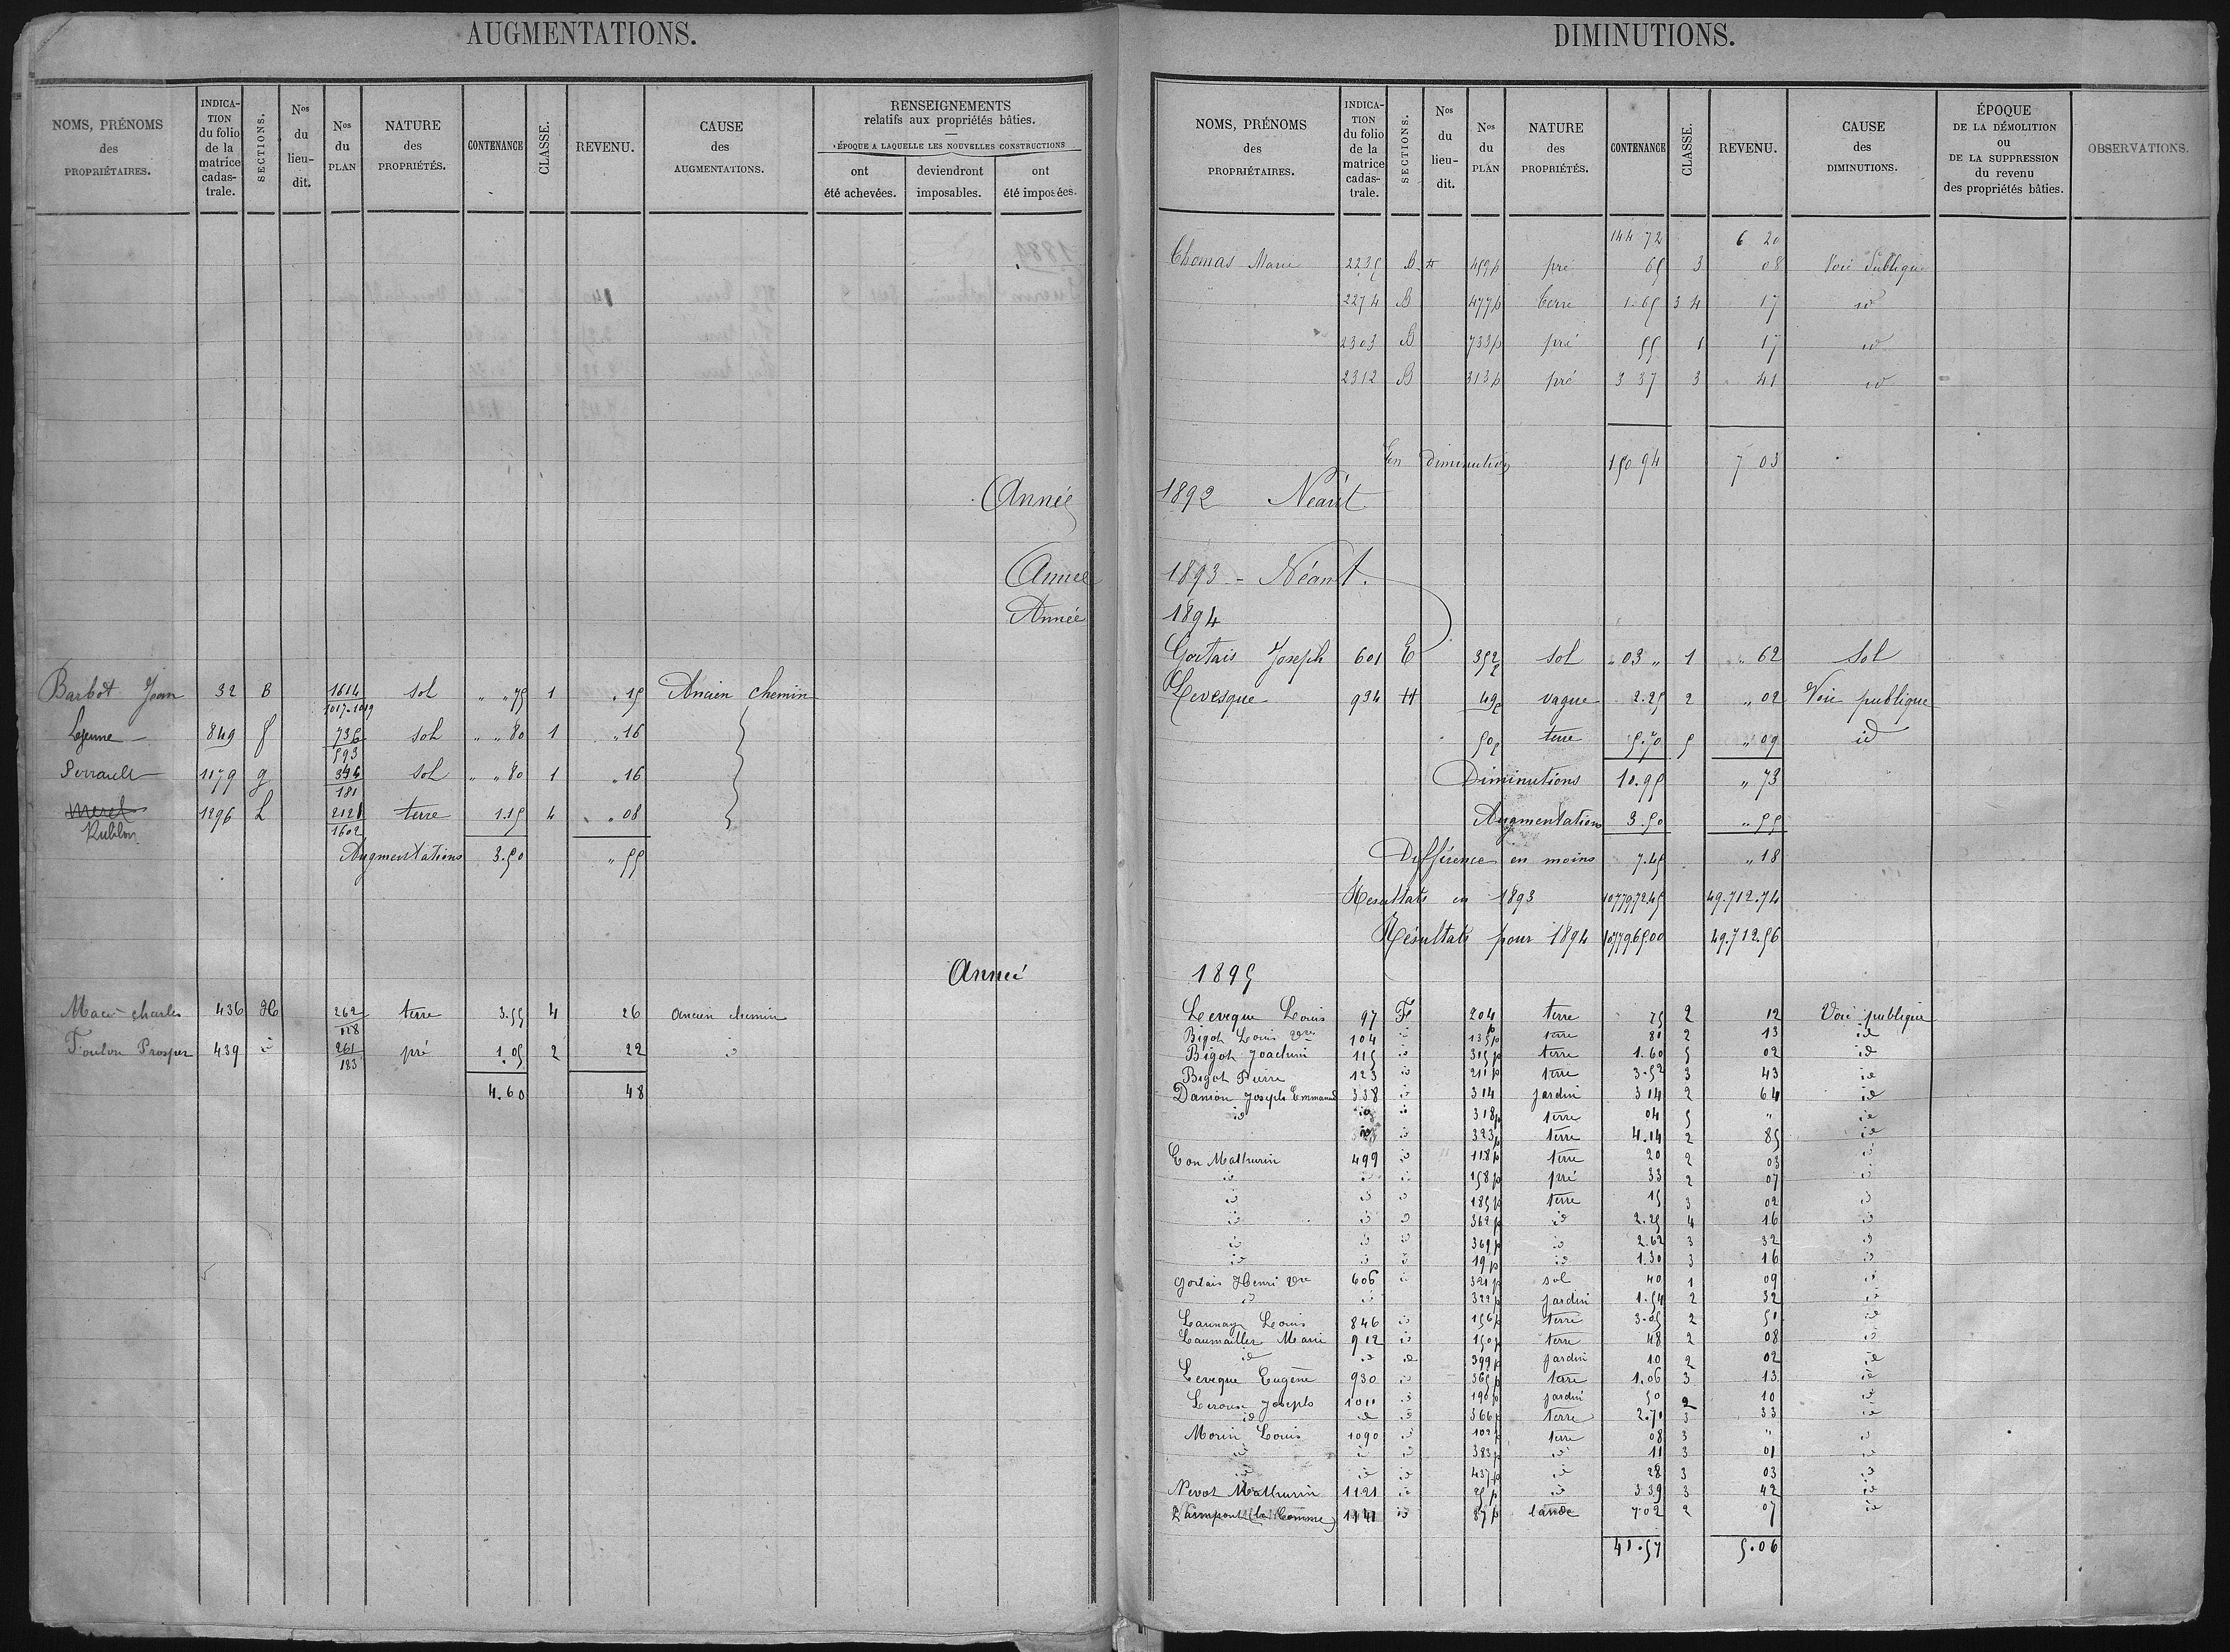 AUGMENTATIONS.
NOMS, PRÉNOMS des PROPRIÉTAIRES.
INDICATION du folio de la matrice cadastrale.
SECTIONS.
Nos du lieu-dit.
Nos du PLAN
NATURE des PROPRIÉTÉS.
CONTENANCE
CLASSE.
REVENU.
CAUSE des AUGMENTATIONS.
RENSEIGNEMENTS relatifs aux propriétés bâties.
ÉPOQUE A LAQUELLE LES NOUVELLES CONSTRUCTIONS
ont été achevées.
deviendront imposables.
ont été imposées.
Année
Année
Année
Barbot Jean 32 B 1614 sol " " 75 1 " 15 Ancien chemin
1017-1019
Lejeune 849 f 736 sol " " 80 1 " 16
593
Perrault 1179 g 346 sol " " 80 1 " 16
181
1296 L 2121 terre 1.15 4 " 08
Rublon 1602
Augmentations 3.50 " 55
Année
Macé charles 436 H 262 terre 3.55 4 26 ancien chemin
128
Foulon Prosper 439 id 261 pré 1.05 2 22 id
183
4.60 48
DIMINUTIONS.
NOMS, PRÉNOMS des PROPRIÉTAIRES.
INDICATION du folio de la matrice cadastrale.
SECTIONS.
Nos du lieu-dit.
Nos du PLAN
NATURE des PROPRIÉTÉS.
CONTENANCE
CLASSE.
REVENU.
CAUSE des DIMINUTIONS.
ÉPOQUE DE LA DÉMOLITION ou DE LA SUPPRESSION du revenu des propriétés bâties.
OBSERVATIONS.
144 72 6 20
Thomas Marie 2235 B 459p pré 65 3 08 Voie Publique
2274 B 477p terre 1.65 3 4 17 id
2303 B 733p pré 55 1 17 id
2312 B 313p pré 3 37 3 41 id
En Diminution 150 94 7 03
1892 Néant
1893 - Néant.
1894
Gortais Joseph 601 E 352p sol " 03 " 1 " 62 Sol
Levesque 934 H 49p vague 2.25 2 " 02 Voie publique
50p terre 5.70 5 " 09 id
Diminutions 10.95 " 73
Augmentations 3.50 " 55
Différence en moins 7.45 " 18
Resultats en 1893 1077972.45 49.712.74
Résultats pour 1894 1077965.00 49.712.56
1895
Leveque Louis 97 F 204 terre 75 2 12 Voie publique
Bigot Louis Vve 104 id 135p terre 81 2 13 id
Bigot Joachim 115 id 315p terre 1.60 5 02 id
Bigot Pierre 123 id 211p terre 3.52 3 43 id
Danion Joseph Emmanuel 338 id 314 jardin 3 14 2 64 id
id id id 318p terre 04 5 " id
id id 323p terre 4.14 2 85 id
Eon Mathurin 499 id 118p terre 20 2 03 id
id id id 158p pré 33 2 07 id
id id id 185p terre 15 3 02 id
id id id 362p id 2.25 4 16 id
id id id 369p id 2.62 3 32 id
id id id 19p id 1.30 3 16 id
Gortais Henri Vve 606 id 321p sol 40 1 09 id
id id 322p jardin 1.54 2 32 id
Launay Louis 846 id 156p terre 3.05 2 51 id
Laumailler Marie 912 id 150p terre 48 2 08 id
id id id 399p jardin 10 2 02 id
Leveque Eugène 930 id 365p terre 1.06 3 13 id
Leroux Joseph 1011 id 190p jardin 50 2 10 id
id id id 366p terre 2.71 3 33 id
Morin Louis 1090 id 102p terre 08 3 " id
id id id 383p id 11 3 01 id
id id id 437p id 28 3 03 id
Nevot Mathurin 1121 id 25p id 3 39 3 42 id
Paimpont (la Comme) 1141 id 87p lande 7.02 2 07 id
41.57 5.06